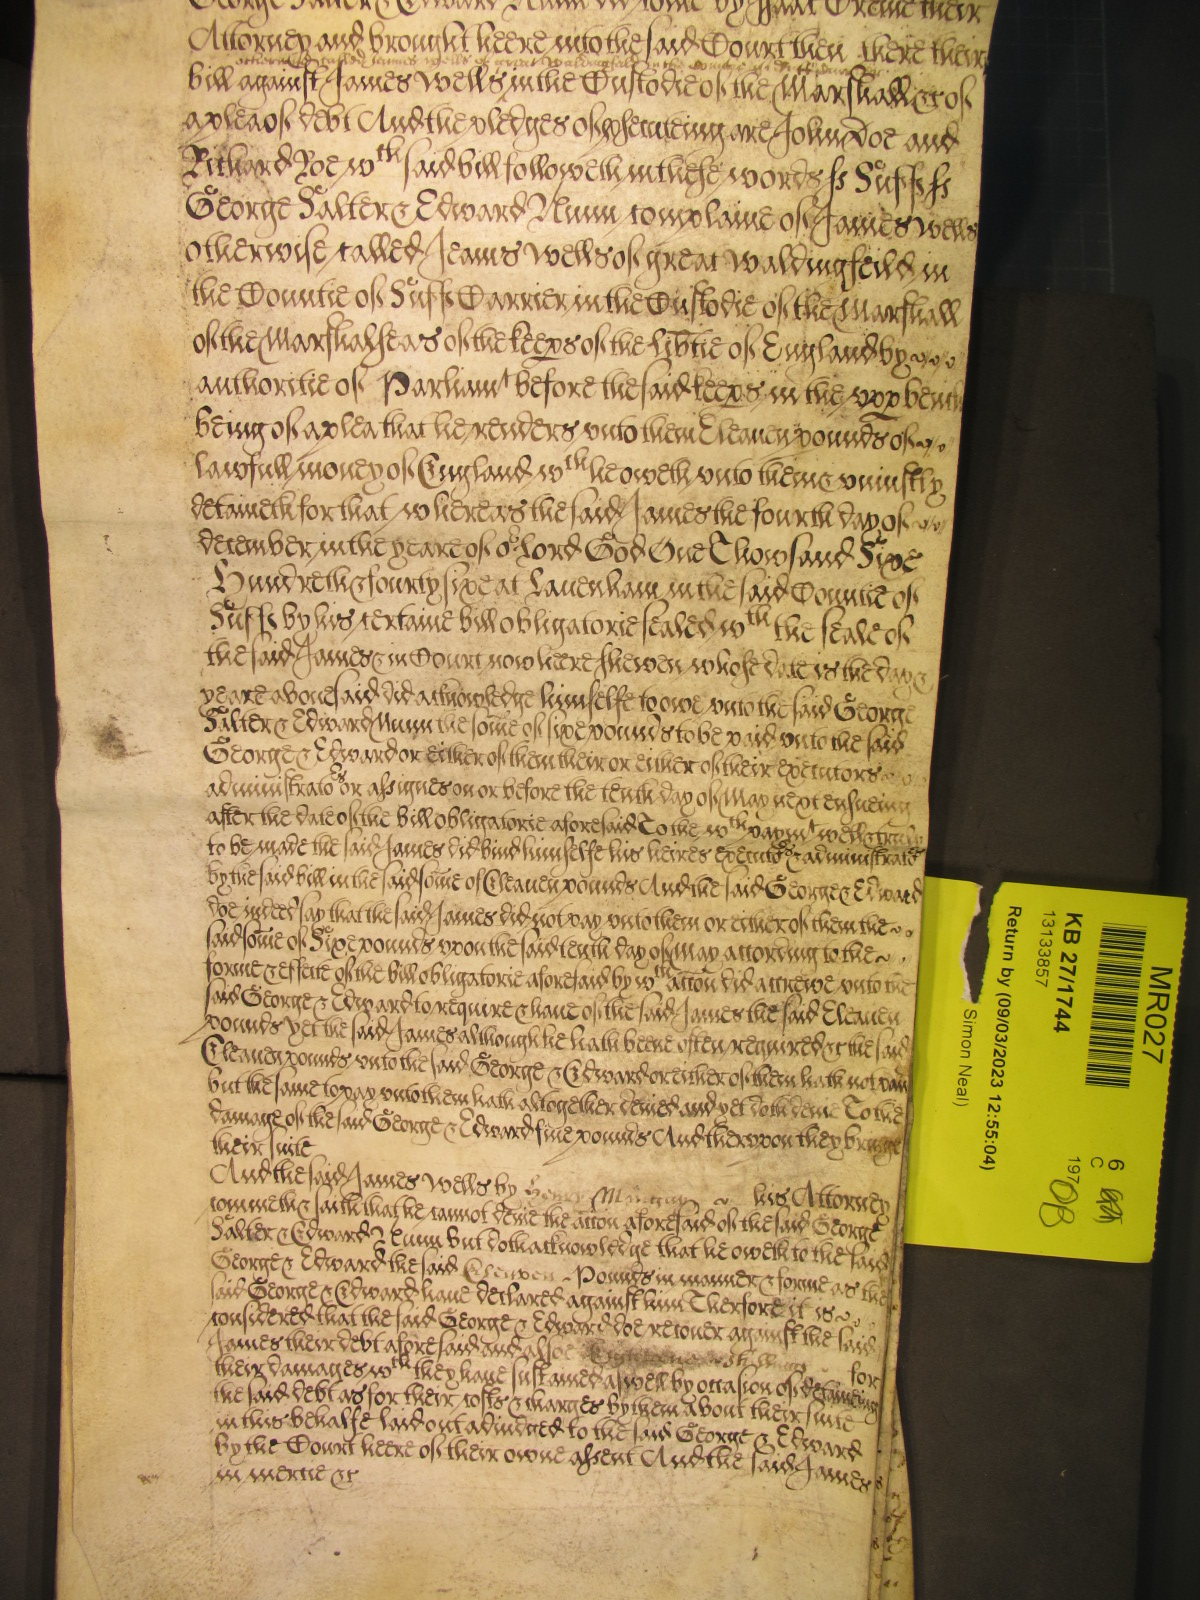 George Salter & Edward Nunn did come by Isaac Creme their
Attorney and brought heere into the said Court then there their
otherwise called Jeames Wells of great Waldingfeild in the Countie of Suff Carrier
bill against James Wells in the Custodie of the Marshall &c of
a plea of debt And the pledges of p'secuteing are John Doe and
Richard Roe wth said bill followeth in these words ss Suff ss
George Salter & Edward Nunn complaine of James Wells
otherwise called Jeams Wells of great Waldingfeild in
the Countie of Suff Carrier in the Custodie of the Marshall
of the Marshalseas of the keeps of the lib'tie of England by
authoritie of Parliamt before the said keeps in the vpp bench
being of a plea that he renders vnto them Eleauen pounds of
lawfull money of England wth he oweth vnto them & vniustly
detaineth for that whereas the said James the fourth day of
december in the yeare of or Lord God One Thowsand Sixe
Hundreth & fourty sixe at Lauenham in the said Countie of
Suff by his certaine bill obligatorie sealed wth the seale of
the said James & in Court now heere shewen whose date is the day &
yeare abouesaid did acknowledge himselfe to owe vnto the said George
Salter & Edward Nunn the some of sixe pounds to be paid vnto the said
George & Edward or either of them their or either of their executors
administrators or assignes on or before the tenth day of May next ensueing
after the date of the bill obligatorie aforesaid To the wth paymt well & truly
to be made the said James did bind himselfe his heires executors & administrators
by the said bill in the said some of Eleauen pounds And the said George & Edward
doe indeed say that the said James did not pay vnto them or either of them the
said some of Sixe pounds vpon the said tenth day of May according to the
forme & effecte of the bill obligatorie aforesaid by wth accon did accrewe vnto the
said George & Edward to require & haue of the said James the said Eleauen
pounds yet the said James although he hath beene often required &c the said
Eleauen pounds vnto the said George & Edward or either of them hath not paid
but the same to pay vnto them hath altogether denied and yet doth denie To the
damage of the said George & Edward fiue pounds And therevpon they bringe
their suite
And the said James Wells by Henry his Attorney
commeth & saith that he cannot denie the accon aforesaid of the said George
Salter & Edward Nunn but doth acknowledge that he oweth to the said
George & Edward the said Eleauen Pounds in manner & forme as the
said George & Edward haue declared against him Therfore it is
considered that the said George & Edward doe recouer against the said
James their debt aforesaid and alsoe shillings for
their damages wth they haue sustained aswell by occasion of detaineing
the said debt as for their costs & charges by them about their suite
in this behalfe laid out adiudged to the said George & Edward
by the Court heere of their owne assent And the said James
in mercie &c
MR027
KB 27/1744
13133857
Return by (09/03/2023 12:55:04)
Simon Neal)
6
C
197